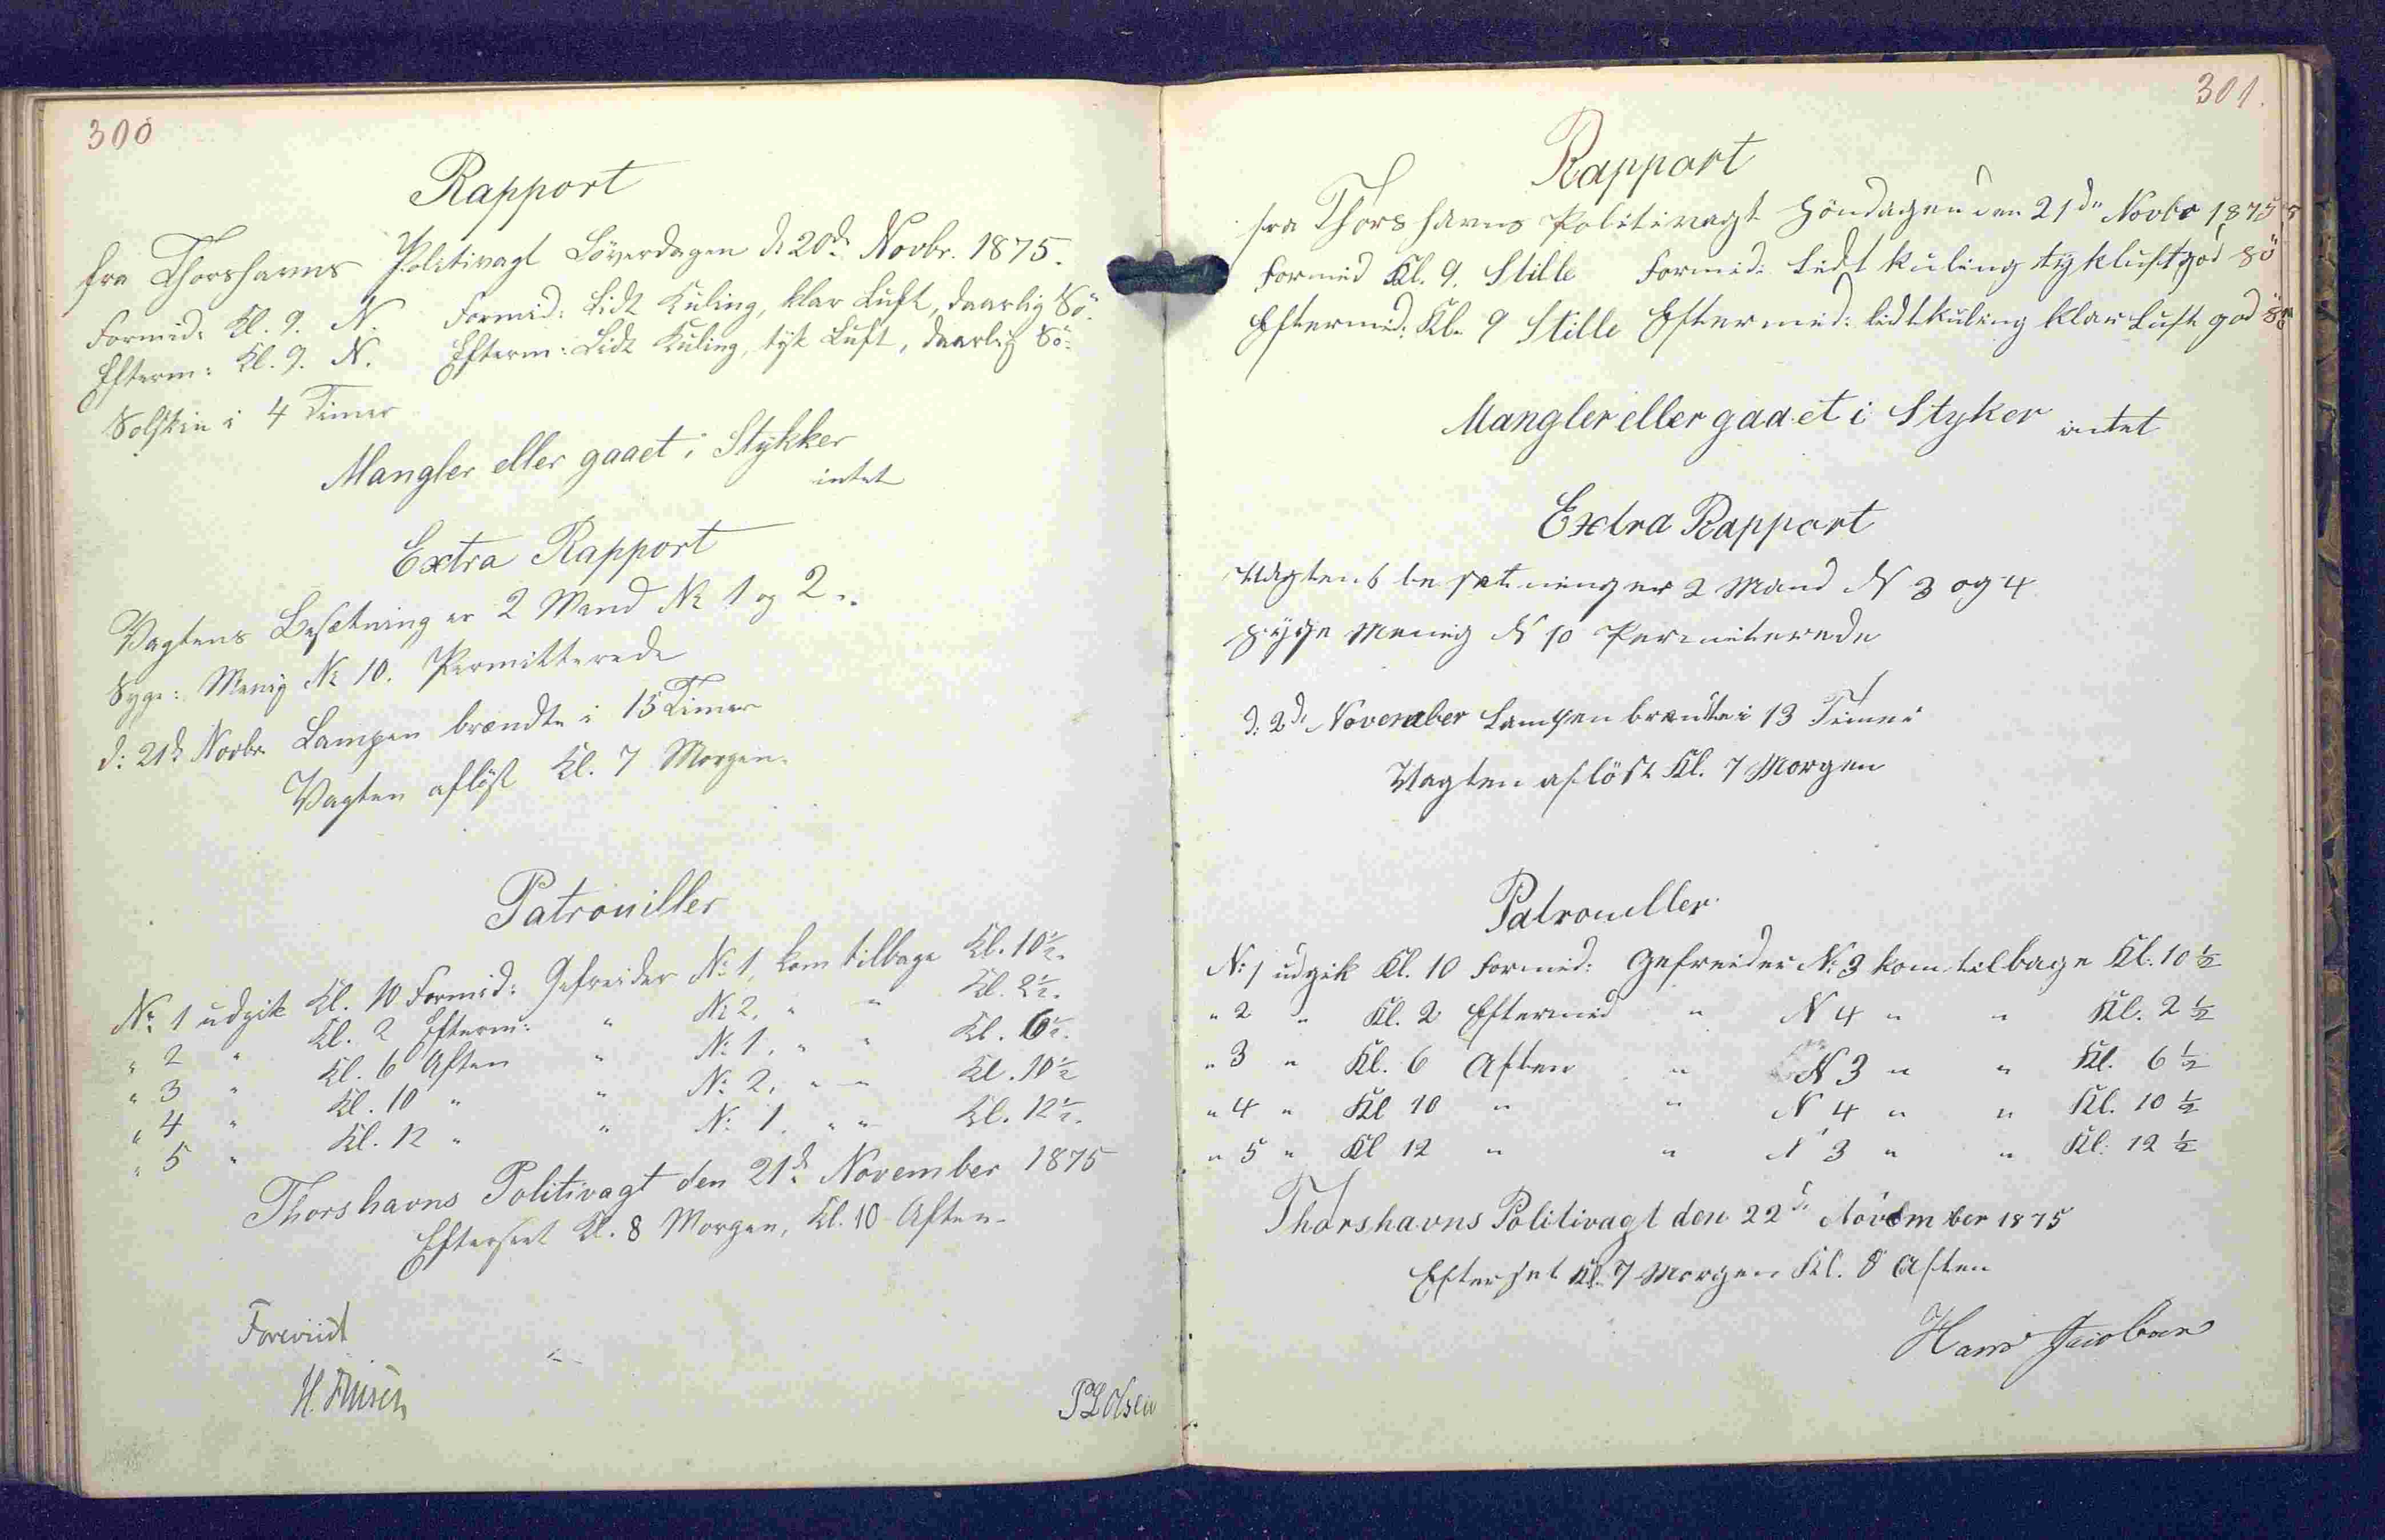 300
Rapport
fra Thorshavns Politivagt Löverdagen d. 20d. Novbr. 1875.
Formid: Kl. 9. N. Formid: Lidt Kuling, klar Luft, daarlig Sö.
Efterm: Kl. 9. N. Efterm: Lidt Kuling, tyk Luft, daarlig Sö.
Solskin i 4 Timer
Mangler eller gaaet i Stykker
intet
Extra Rapport
Vagtens Besætning er 2 Mand No 1 og 2.
Syge: Menig No 10. Permitterede
d: 21d Novbr. Lampen brændte i 15 Timer
Vagten aflöst Kl. 7 Morgen.
Patrouiller
No. 1 udgik Kl. 10 Formid: Gefreider No. 1, kom tilbage Kl. 10½.
" 2 " Kl. 2 Efterm: " No 2, " " Kl. 2½.
" 3 " Kl. 6 Aften " No. 1, " " Kl. 6½.
" 4 " Kl. 10 " " No. 2, " " Kl. 10½
" 5 " Kl. 12 " " No. 1, " " Kl. 12½.
Thorshavns Politivagt den 21d. November 1875
Efterseet Kl. 8 Morgen, Kl. 10 Aften.
Foreviist
P L Olsen
301.
Rapport
fra Thorshavns Politivagt Söndagen den 21de Novbr 1875
Formid Kl. 9. Stille Formid: Lidt kuling tykluft god Sö
Eftermid: Kl. 9 Stille Eftermid: lidt kuling klar Luft god Sö
Mangler eller gaaet i Styker intet
Extra Rapport
Vagtens besetninger 2 Mand N 3 og 4
Syge Menig N 10 Permiterede
d: 2de November Lampen brændte i 13 Timer
Vagten aflöst Kl. 7 Morgen
Patrouller
N: 1 udgik Kl. 10 Formid: Gefreider N: 3 kom tilbage Kl. 10 ½
" 2 " Kl. 2 Eftermid " N 4 " " Kl. 2 ½
" 3 " Kl. 6 Aften " N 3 " " Kl. 6 ½
" 4 " Kl 10 " " N 4 " " Kl. 10 ½
" 5 " Kl 12 " " N 3 " " Kl: 12 ½
Thorshavns Politivagt den 22de November 1875
Efterset Kl. 7 Morgen Kl. 8 Aften
Hans Jacobsen